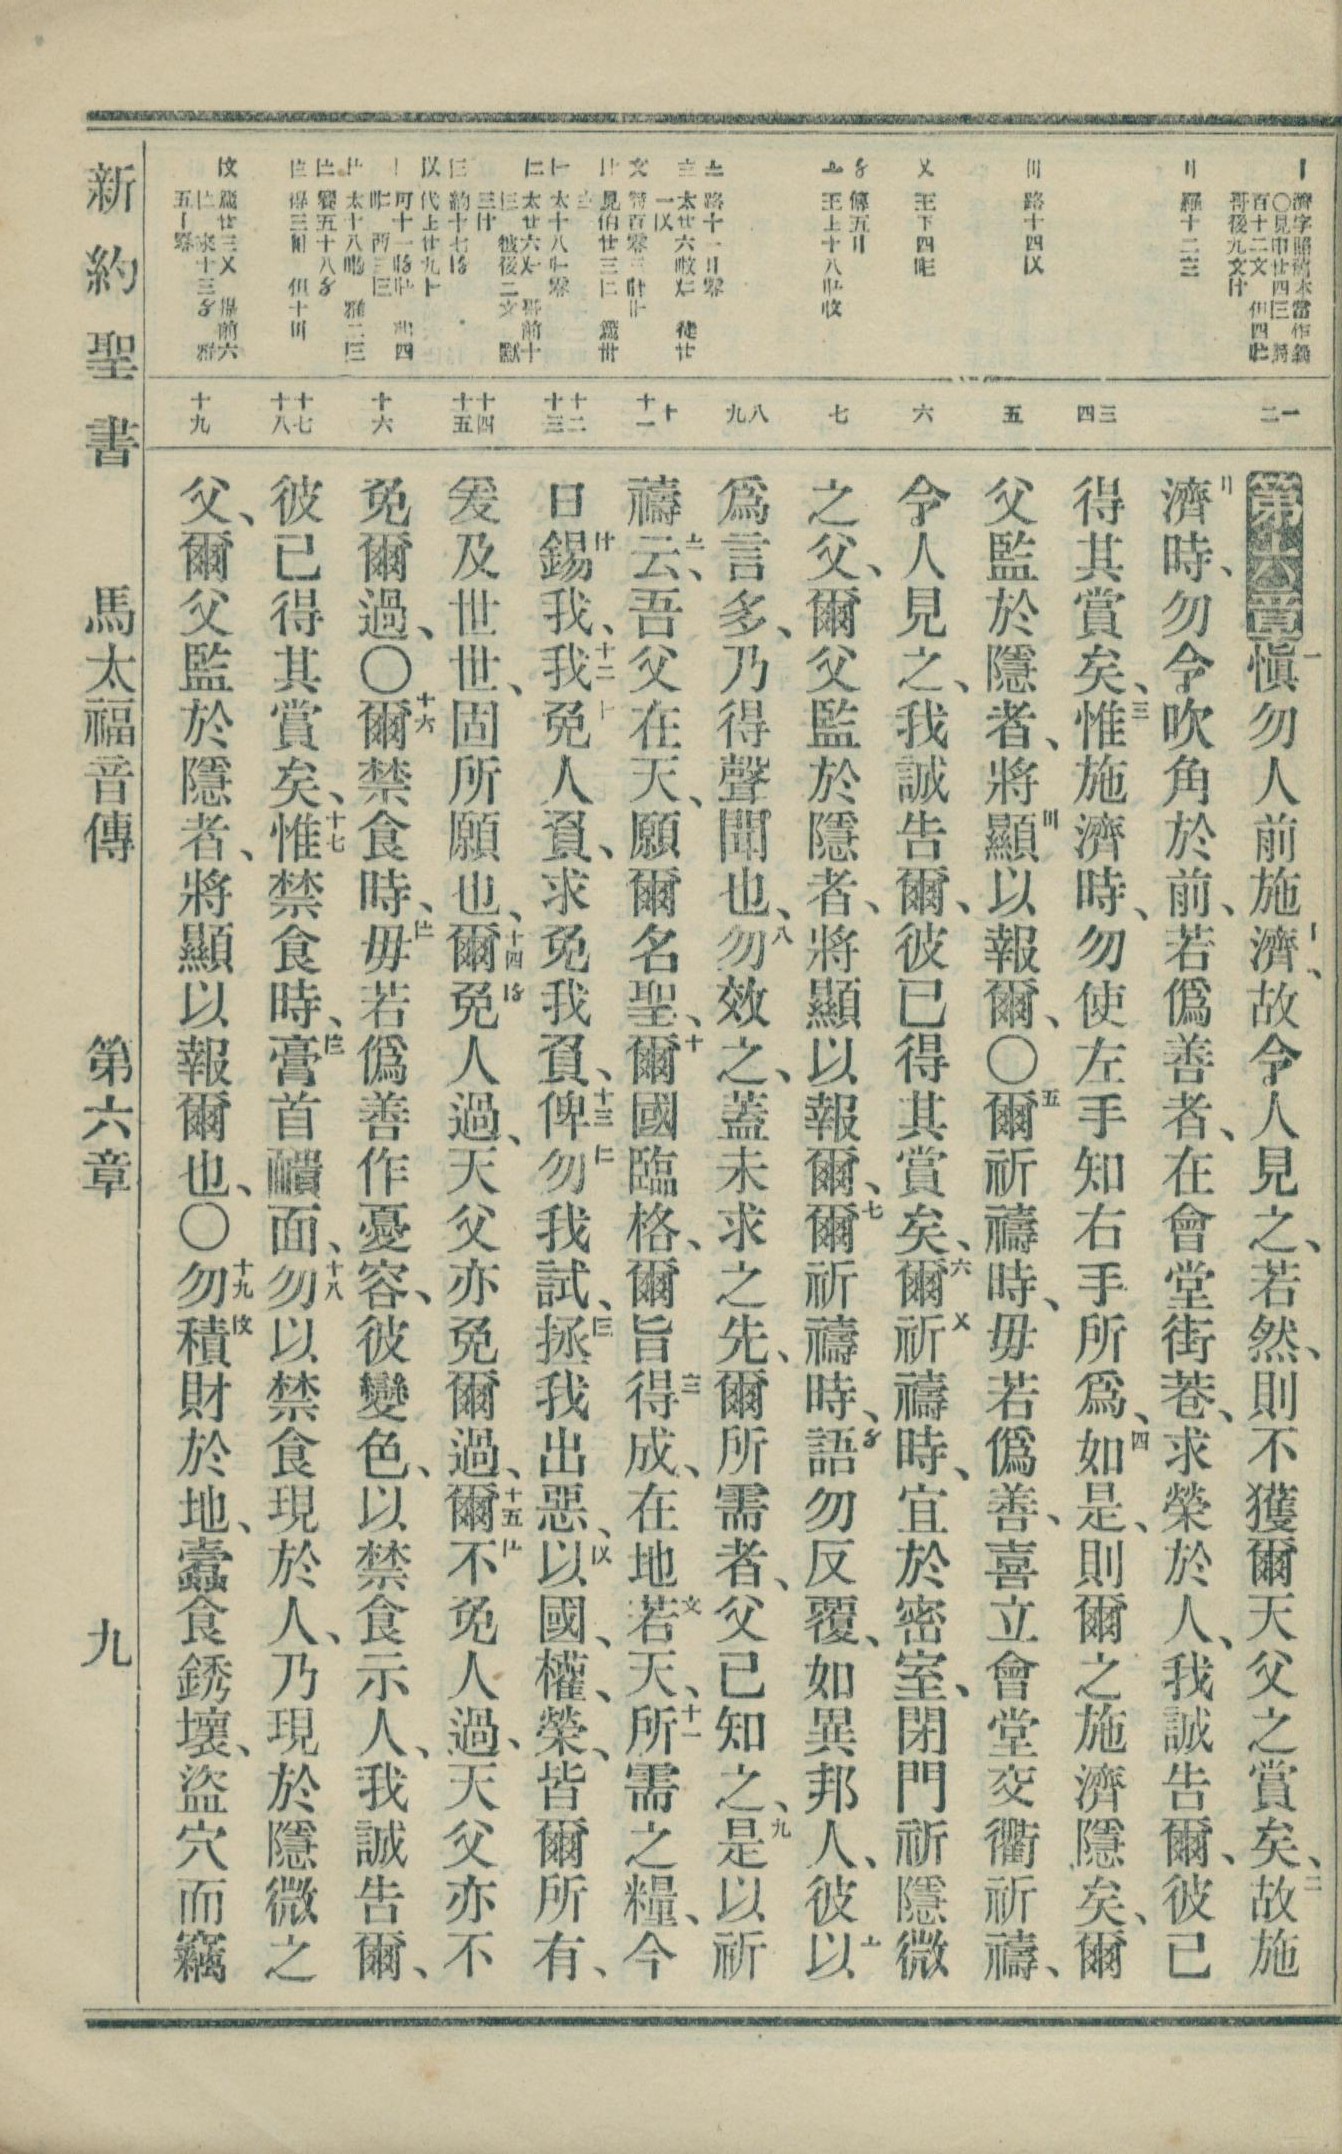 第六章一愼勿人前施濟、故令人見之、若然、則不獲爾天父之賞矣、二故施
濟時、勿令吹角於前、若僞善者、在會堂街巷、求榮於人、我誠告爾、彼已
得其賞矣、三惟施濟時、勿使左手知右手所爲、四如是、則爾之施濟隱矣、爾
父監於隱者、將顯以報爾、〇五爾祈禱時、毋若僞善、喜立會堂交衢祈禱、
令人見之、我誠告爾、彼已得其賞矣、六爾祈禱時、宜於密室、閉門祈隱微
之父、爾父監於隱者、將顯以報爾、七爾祈禱時、語勿反覆、如異邦人、彼以
爲言多、乃得聲聞也、八勿效之、蓋未求之先、爾所需者、父已知之、九是以祈
禱云、吾父在天、願爾名聖、十爾國臨格、爾旨得成、在地若天、十一所需之糧、今
日錫我、十二我免人負、求免我負、十三俾勿我試、拯我出惡、以國、權、榮、皆爾所有、
爰及世世、固所願也、十四爾免人過、天父亦免爾過、十五爾不免人過、天父亦不
免爾過、〇十六爾禁食時、毋若僞善作憂容、彼變色、以禁食示人、我誠告爾、
彼已得其賞矣、十七惟禁食時、膏首靧面、十八勿以禁食現於人、乃現於隱微之
父、爾父監於隱者、將顯以報爾也、〇十九勿積財於地、蠹食銹壞、盜穴而竊
一
二
三
四
五
六
七
八
九
十
十一
十二
十三
十四
十五
十六
十七
十八
十九
新約聖書 馬太福音傳 第六章 九